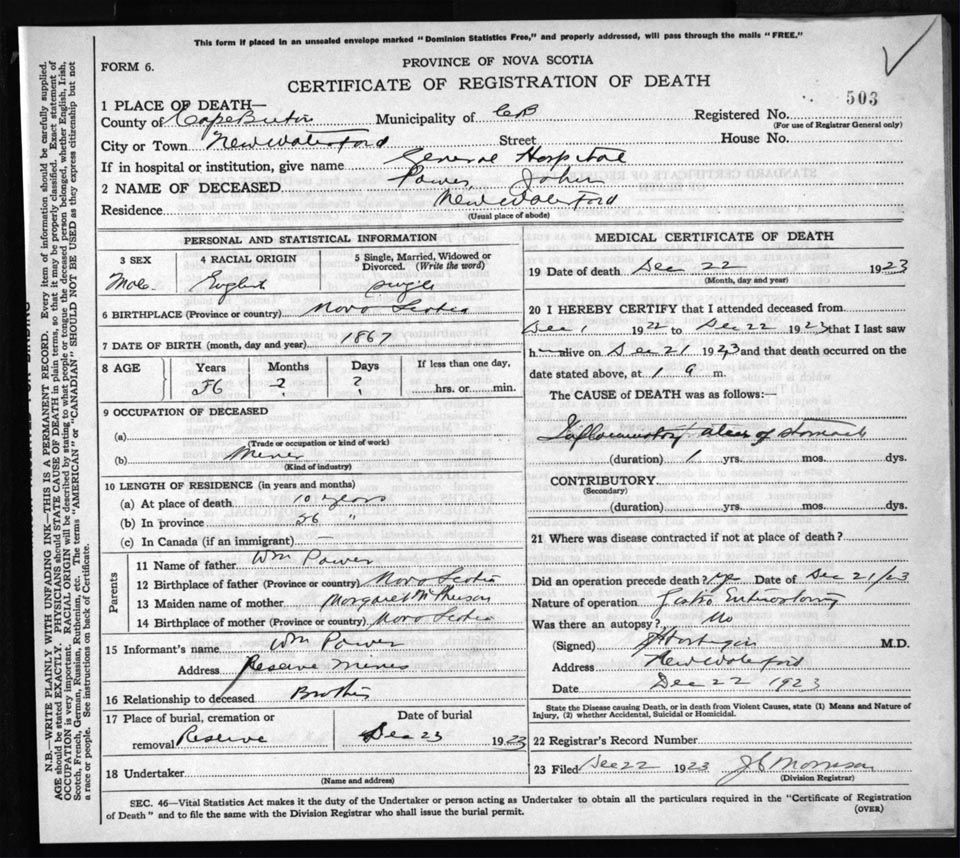 This form if placed in an unsealed envelope marked "Dominion Statistics Free," and properly addressed, will pass through the mails "FREE."
FORM 6.
PROVINCE OF NOVA SCOTIA
CERTIFICATE OF REGISTRATION OF DEATH
503
1 PLACE OF DEATH—
County of Cape Breton Municipality of CB Registered No.
(For use of Registrar General only)
City or Town New Waterford Street House No.
If in hospital or institution, give name General Hospital
2 NAME OF DECEASED Power, John
Residence New Waterford
(Usual place of abode)
PERSONAL AND STATISTICAL INFORMATION
3 SEX 4 RACIAL ORIGIN 5 Single, Married, Widowed or Divorced. (Write the word)
Male English single
6 BIRTHPLACE (Province or country) Nova Scotia
7 DATE OF BIRTH (month, day and year) 1867
8 AGE Years Months Days If less than one day,
56 ? ? hrs. or min.
9 OCCUPATION OF DECEASED
(a)
(Trade or occupation or kind of work)
(b) Miner
(Kind of industry)
10 LENGTH OF RESIDENCE (in years and months)
(a) At place of death 10 years
(b) In province 56 "
(c) In Canada (if an immigrant) —
Parents
11 Name of father Wm Power
12 Birthplace of father (Province or country) Nova Scotia
13 Maiden name of mother Margaret
14 Birthplace of mother (Province or country) Nova Scotia
15 Informant's name Wm Power
Address Reserve Mines
16 Relationship to deceased Brother
17 Place of burial, cremation or removal Reserve Date of burial Dec 23 1923
18 Undertaker
(Name and address)
MEDICAL CERTIFICATE OF DEATH
19 Date of death Dec 22 1923
(Month, day and year)
20 I HEREBY CERTIFY that I attended deceased from
Dec 1 1922 to Dec 22 1923 that I last saw
h im alive on Dec 21 1923 and that death occurred on the
date stated above, at 1 a m.
The CAUSE of DEATH was as follows:—
Inflammatory ulcer of stomach
(duration) 1 yrs. mos. dys.
CONTRIBUTORY
(Secondary)
(duration) yrs. mos. dys.
21 Where was disease contracted if not at place of death?
Did an operation precede death? Date of Dec 21/23
Nature of operation Gastro Enterostomy
Was there an autopsy? No
(Signed) M.D.
Address New Waterford
Date Dec 22 1923
State the Disease causing Death, or in death from Violent Causes, state (1) Means and Nature of Injury, (2) whether Accidental, Suicidal or Homicidal.
22 Registrar's Record Number
23 Filed Dec 22 1923 Morrison
(Division Registrar)
SEC. 46—Vital Statistics Act makes it the duty of the Undertaker or person acting as Undertaker to obtain all the particulars required in the "Certificate of Registration
of Death" and to file the same with the Division Registrar who shall issue the burial permit.
(OVER)
N.B.—WRITE PLAINLY, WITH UNFADING INK—THIS IS A PERMANENT RECORD. Every item of information should be carefully supplied.
AGE should be stated EXACTLY. PHYSICIANS should STATE CAUSE OF DEATH in plain terms, so that it may be properly classified. Exact statement of
OCCUPATION is very important. RACIAL ORIGIN will be described by stating to what people or tongue the deceased person belonged, whether English, Irish,
Scotch, French, German, Russian, Ruthenian, etc. The terms "AMERICAN" or "CANADIAN" SHOULD NOT BE USED as they express citizenship but not
a race or people. See instructions on back of Certificate.